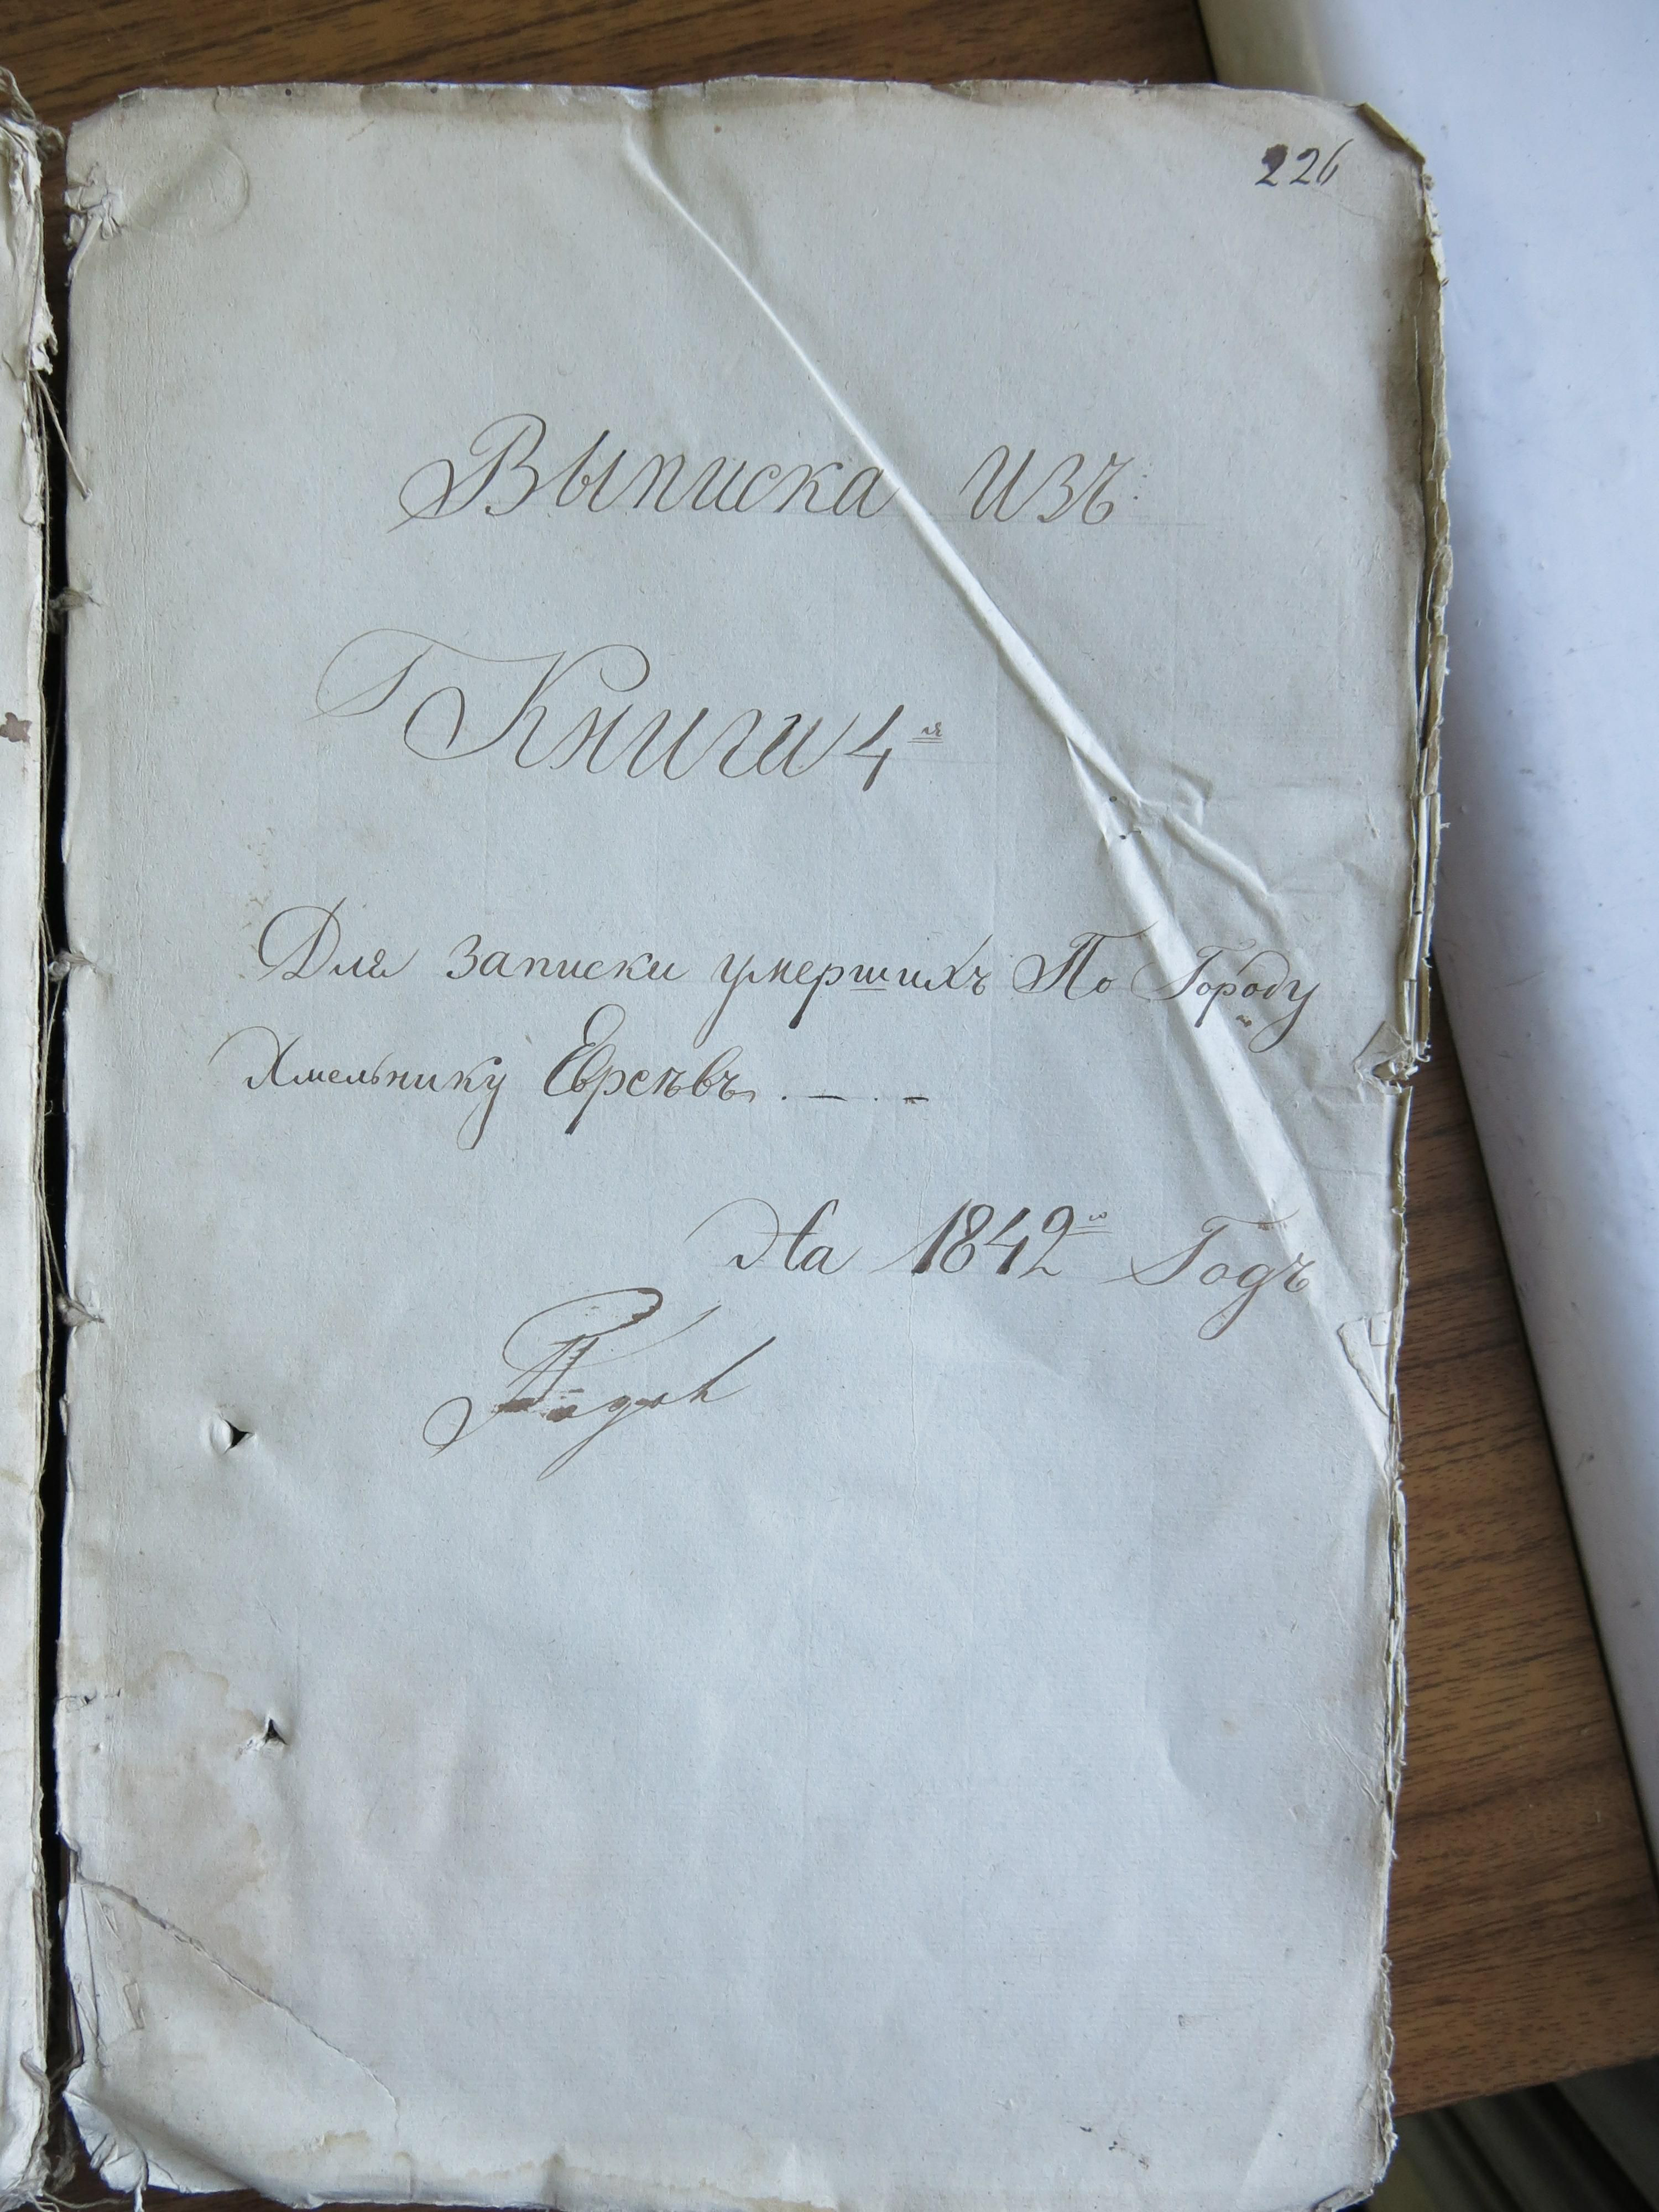 226
Выписка изъ
Книги 4ꙵя
Для записки умершихъ По Городу
Хмельнику Евреѣвъ. — . —
На 1842го Годъ